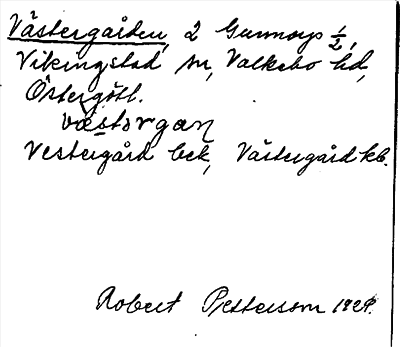 Västergården, 2 Gunnorps ½,
Vikingstad sn, Valkebo hd,
Östergötl.
væstərgaɳ
Vestergård bek, Västergård kb.
Robert Pettersson 1929.